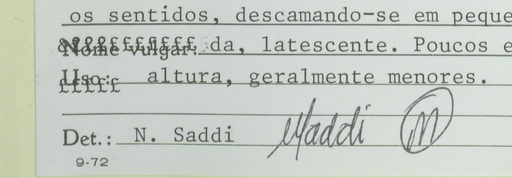 os sentidos, descamando-se em peque
Nome vulgar: da, latescente. Poucos e
Uso: altura, geralmente menores.
Det.: N. Saddi NSaddi
9-72